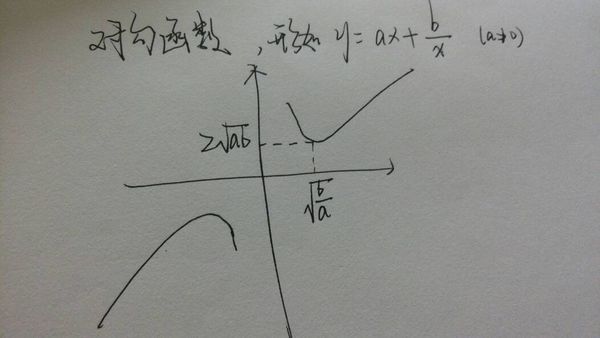 对勾函数,形如 y = ax + b/x (a≠0)
2√ab
√(b/a)